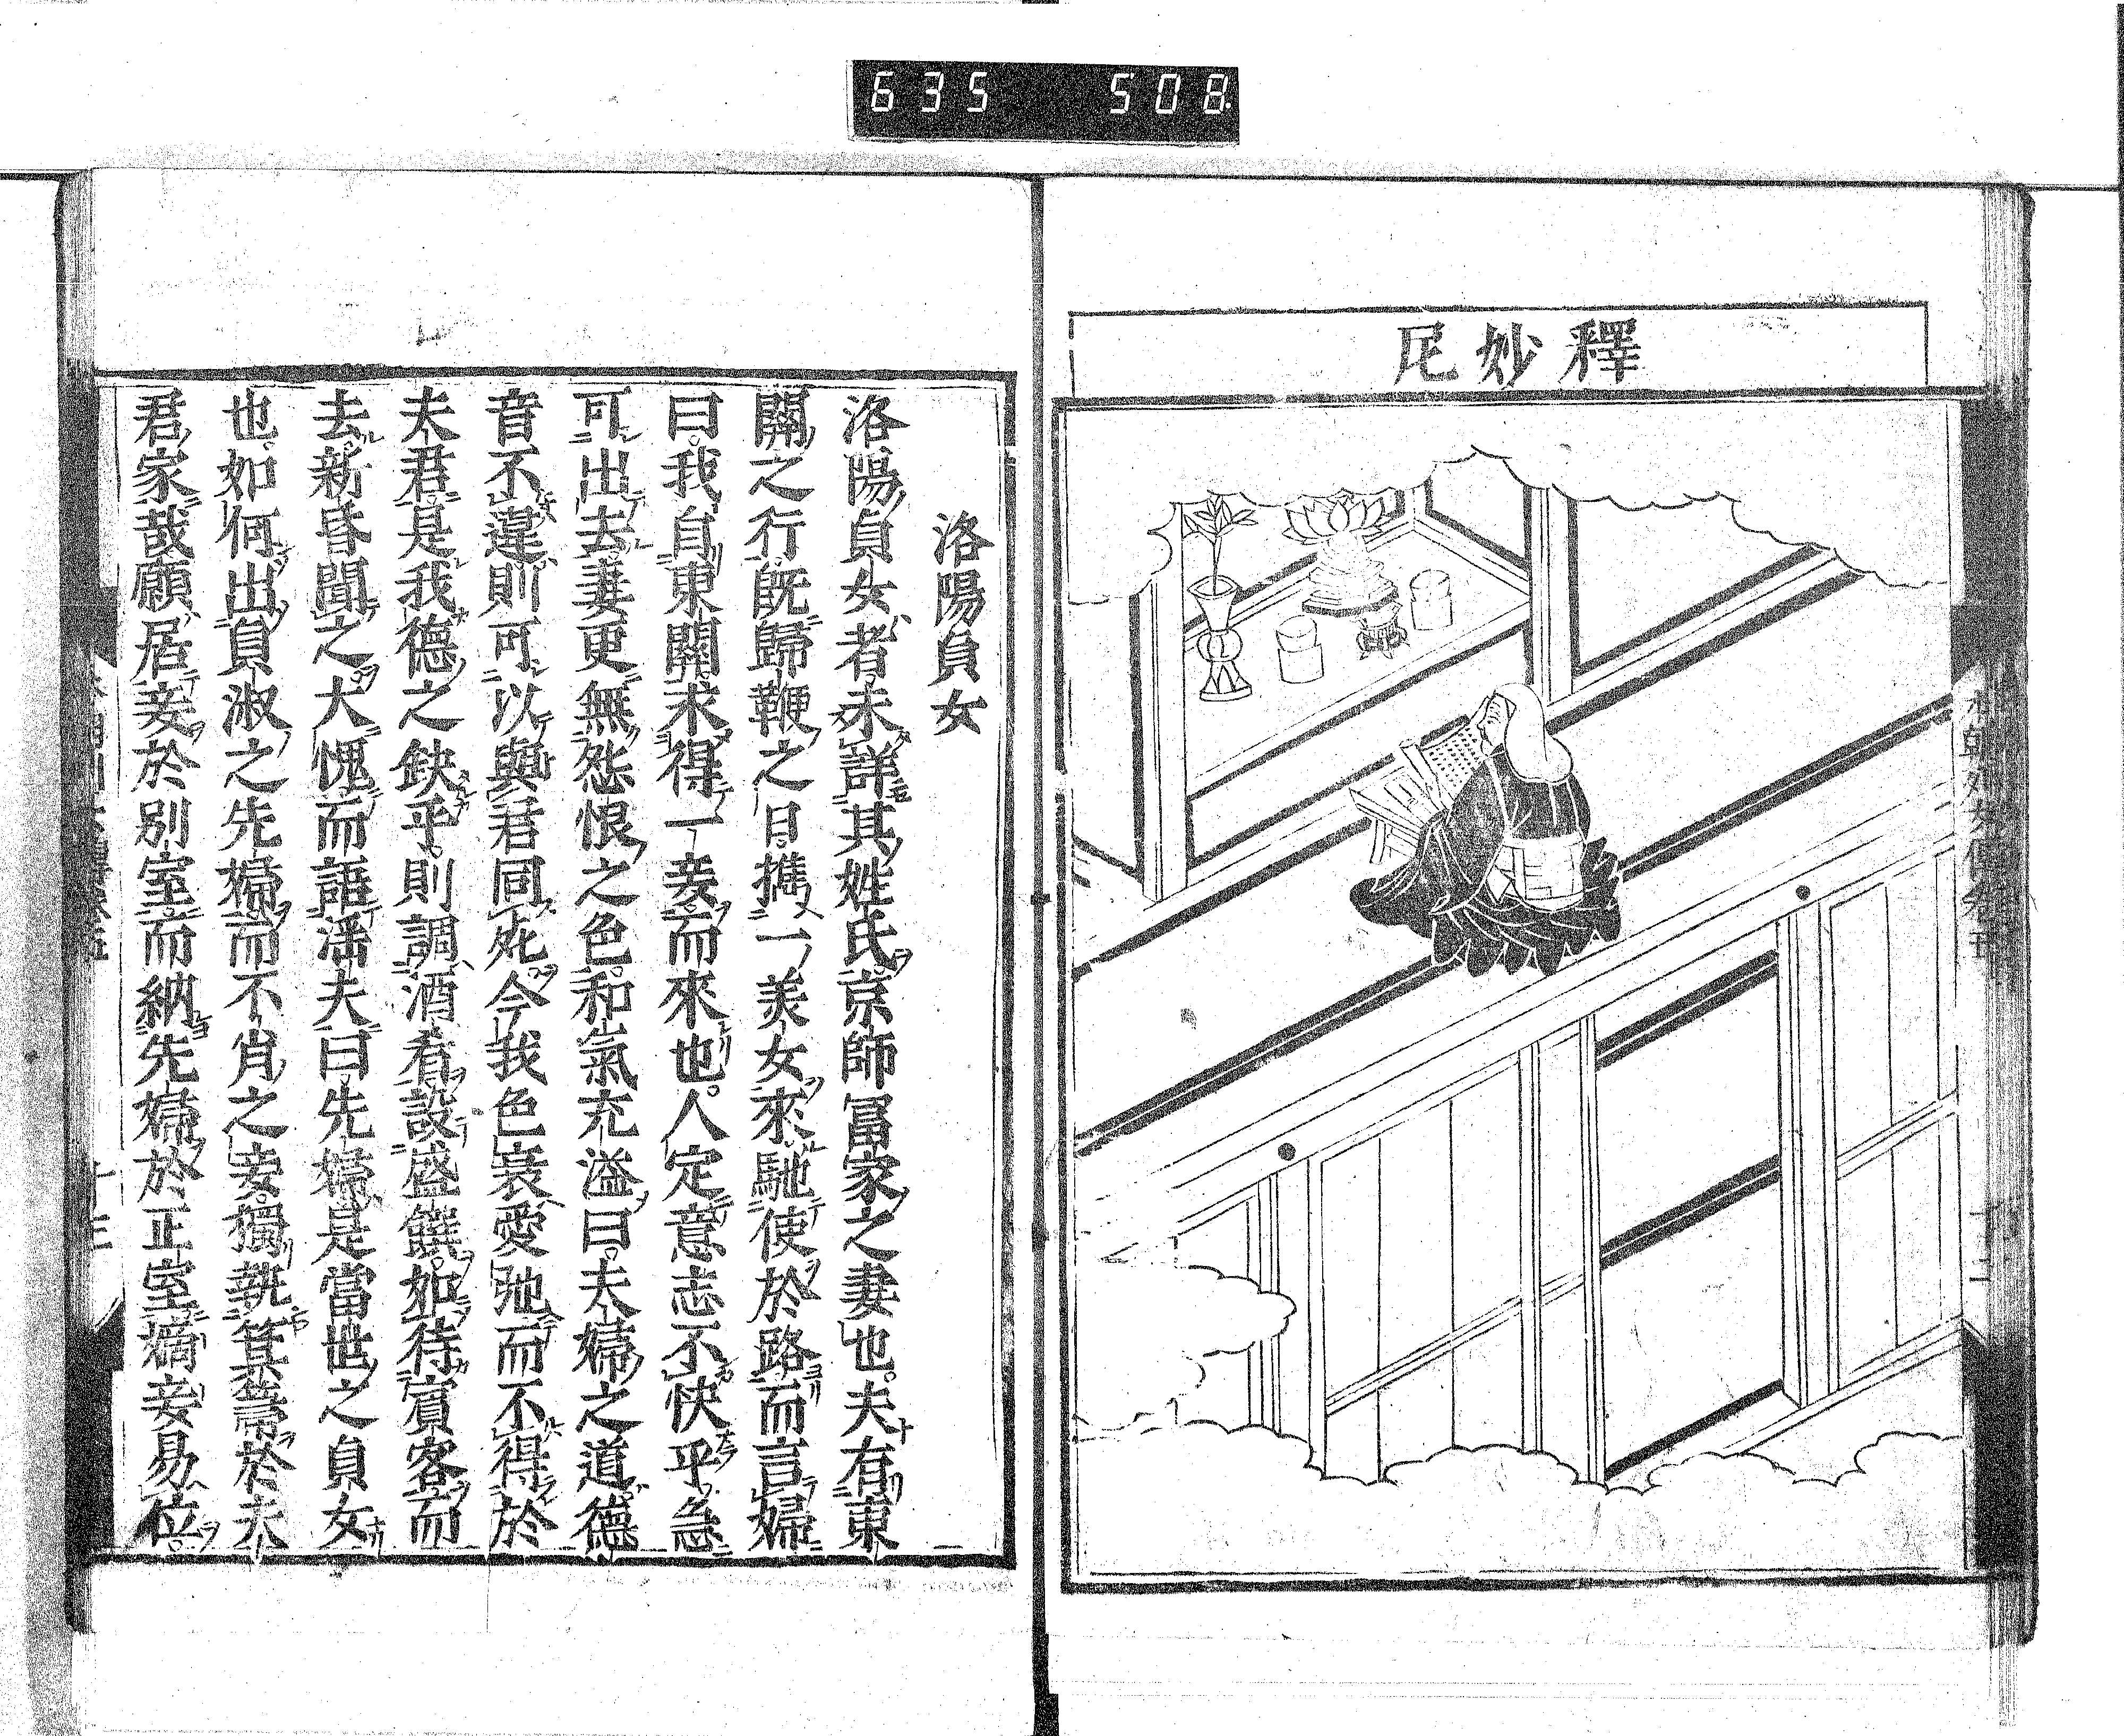 635 508.
釋妙尼
洛陽貞女
洛陽貞女者未詳其姓氏京師冨家之妻也。夫有東
關之行。既歸鞭之日。攜一美女來馳使於路而言婦
曰。我自東關求得一妾而來也。人定意志不快乎。急
可出去。妻更無怨恨之色。和氣充溢曰。夫婦之道德
音不違則可以與君同死。今我色衰愛弛而不得於
夫君是我德之缺乎。則調酒肴設盛饌。如待賓客而
去。新昏聞之大愧而語藩夫曰。先婦是當世之貞女
也。如何出貞淑之先婦。而不肖之妾。獨執箕箒於夫
君家哉願居妾於別室。而納先婦於正室嫡妾易位。